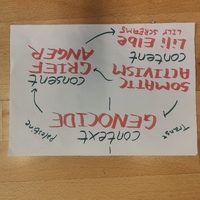 context
Trans
Palestine
GENOCIDE
SOMATIC
ACTIVISM
content
Lili Elbe
LILY SCREAMS
consent
GRIEF
ANGER